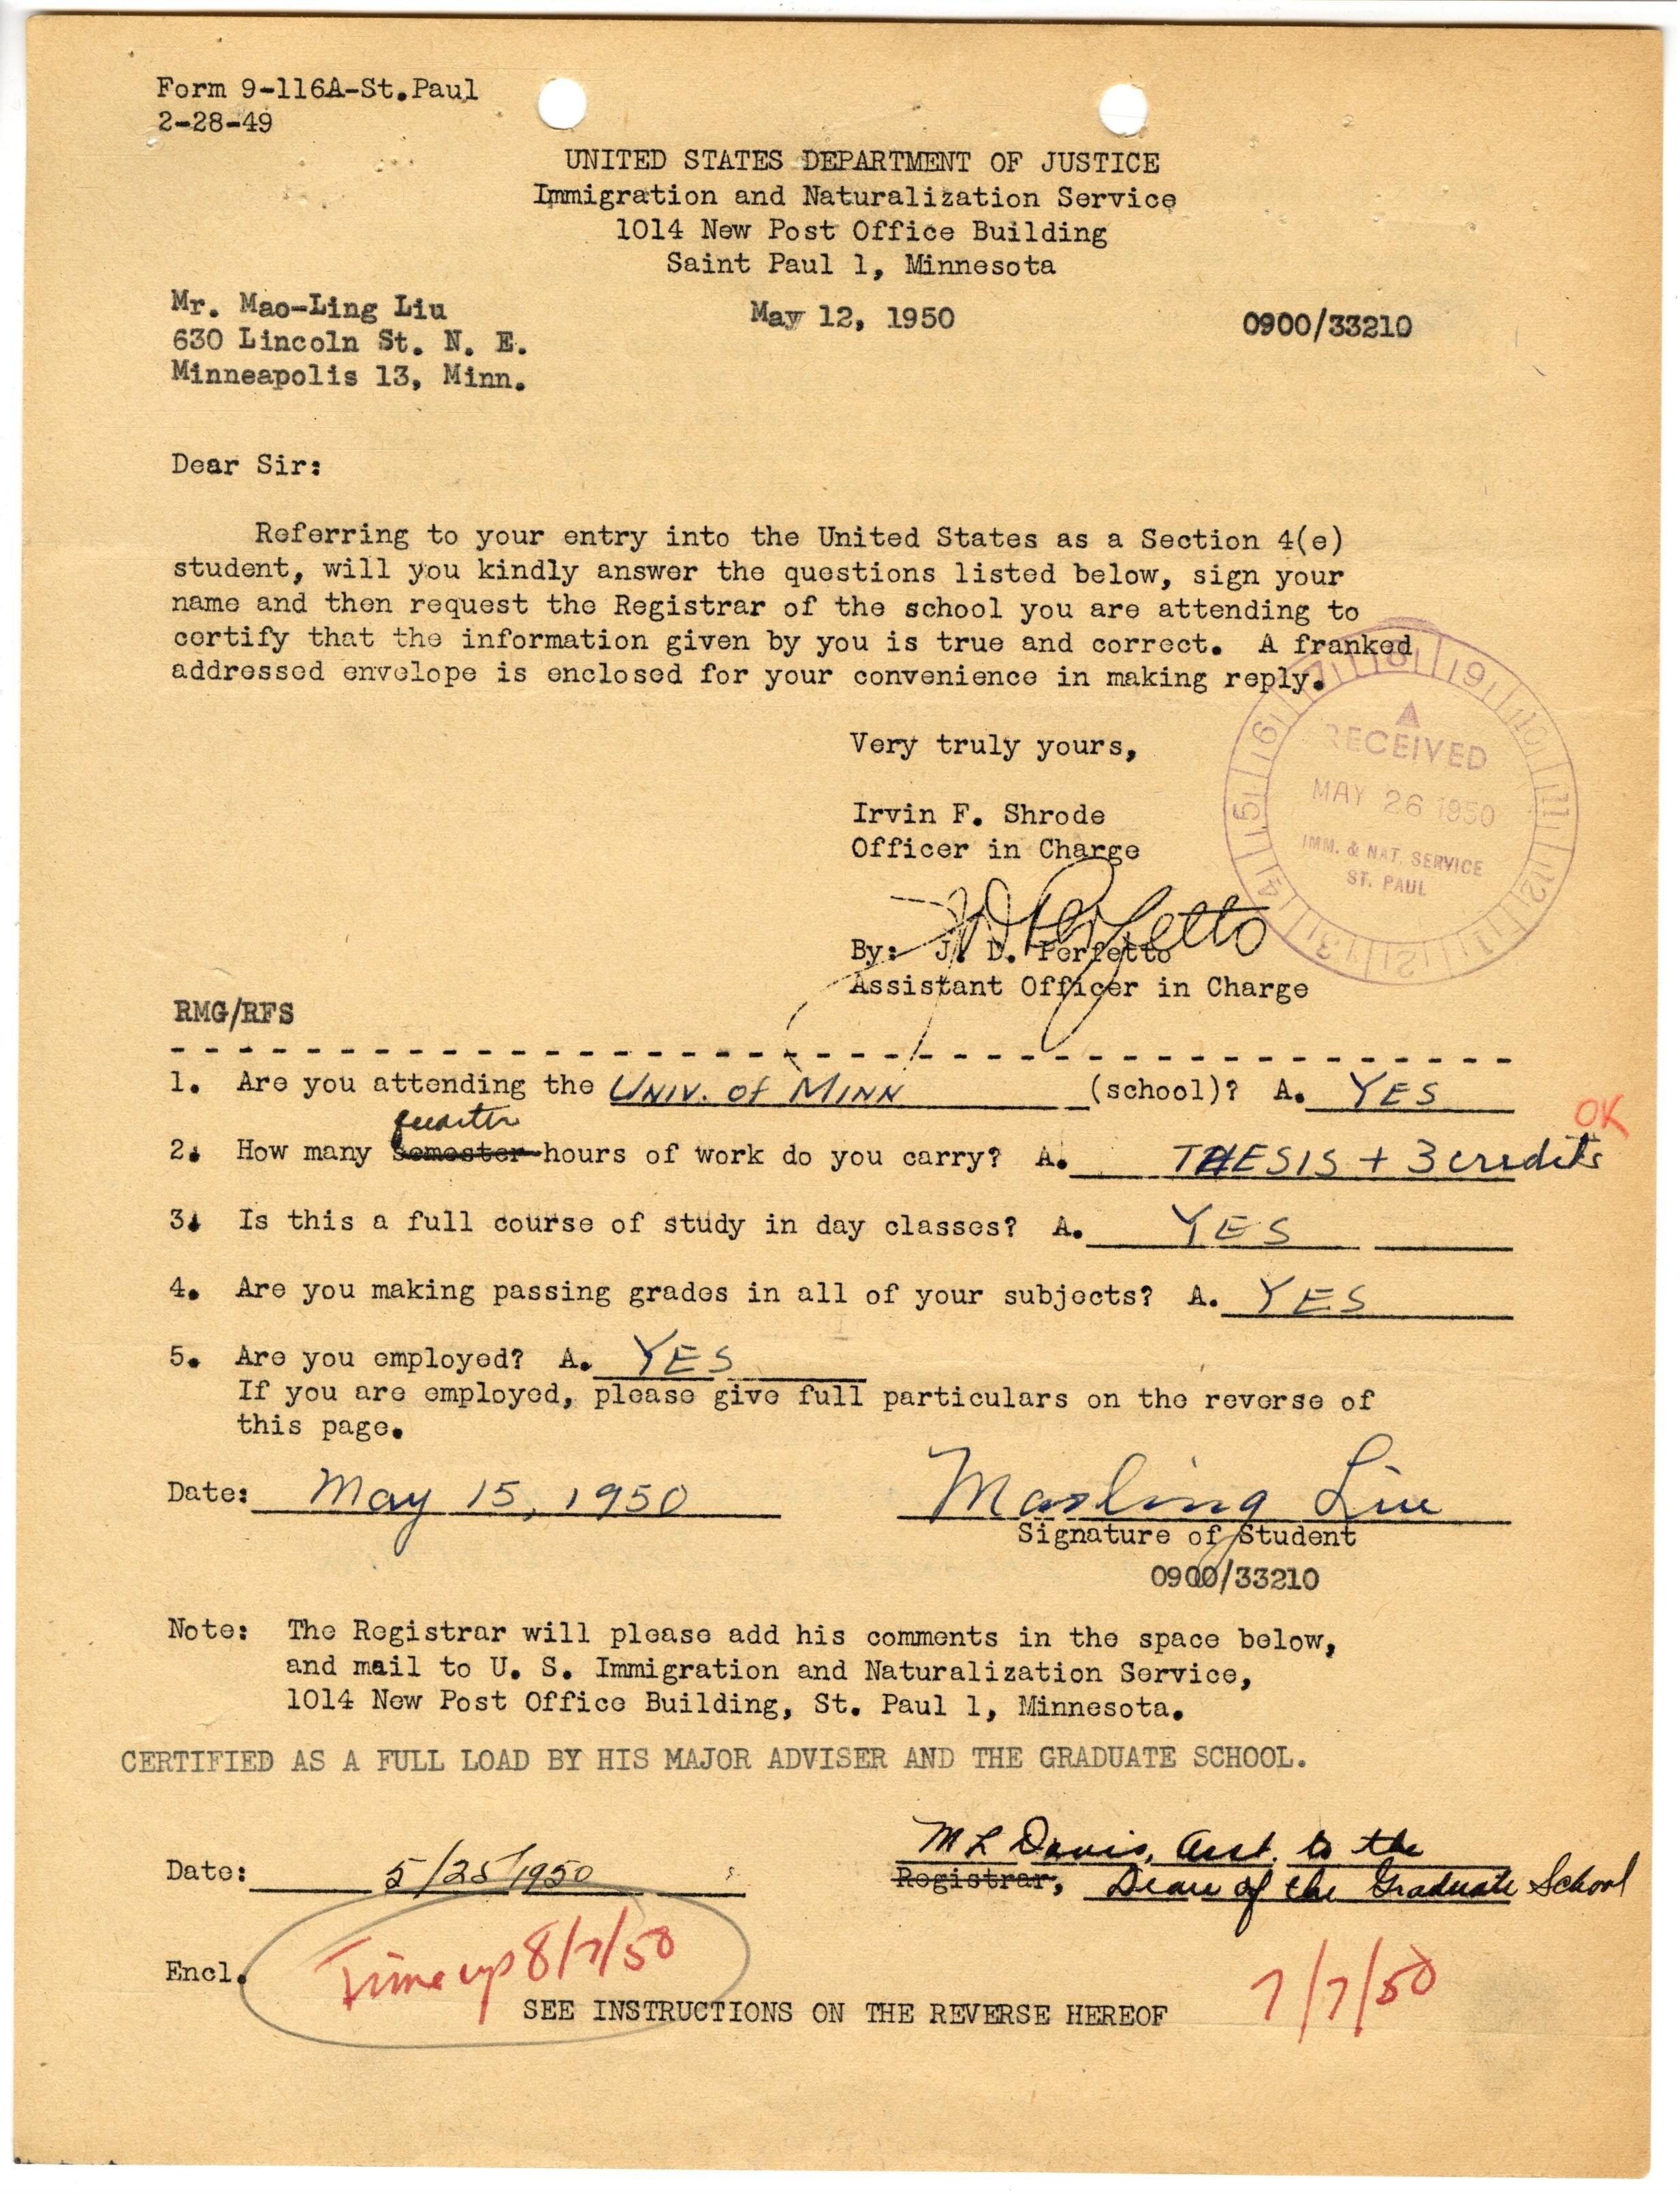 Form 9-116A-St.Paul
2-28-49
UNITED STATES DEPARTMENT OF JUSTICE
Immigration and Naturalization Service
1014 New Post Office Building
Saint Paul 1, Minnesota
Mr. Mao-Ling Liu
630 Lincoln St. N. E.
Minneapolis 13, Minn.
May 12, 1950
0900/33210
Dear Sir:
Referring to your entry into the United States as a Section 4(e)
student, will you kindly answer the questions listed below, sign your
name and then request the Registrar of the school you are attending to
certify that the information given by you is true and correct. A franked
addressed envelope is enclosed for your convenience in making reply.
Very truly yours,
Irvin F. Shrode
Officer in Charge
J D Perfetto
By: J. D. Perfetto
Assistant Officer in Charge
7 8 9 10 11 12 1 2 3 4 5 6
RECEIVED
MAY 26 1950
IMM. & NAT. SERVICE
ST. PAUL
RMG/RFS
1. Are you attending the UNIV. of MINN (school)? A. YES
OK
quarter
2. How many semester hours of work do you carry? A. THESIS + 3 credits
3. Is this a full course of study in day classes? A. YES
4. Are you making passing grades in all of your subjects? A. YES
5. Are you employed? A. YES
If you are employed, please give full particulars on the reverse of
this page.
Date: May 15, 1950
Maoling Liu
Signature of Student
0900/33210
Note: The Registrar will please add his comments in the space below,
and mail to U. S. Immigration and Naturalization Service,
1014 New Post Office Building, St. Paul 1, Minnesota.
CERTIFIED AS A FULL LOAD BY HIS MAJOR ADVISER AND THE GRADUATE SCHOOL.
M L Davis, Asst. to the
Date: 5/25/1950
Registrar, Dean of the Graduate School
Encl.
Time up 8/7/50
7/7/50
SEE INSTRUCTIONS ON THE REVERSE HEREOF